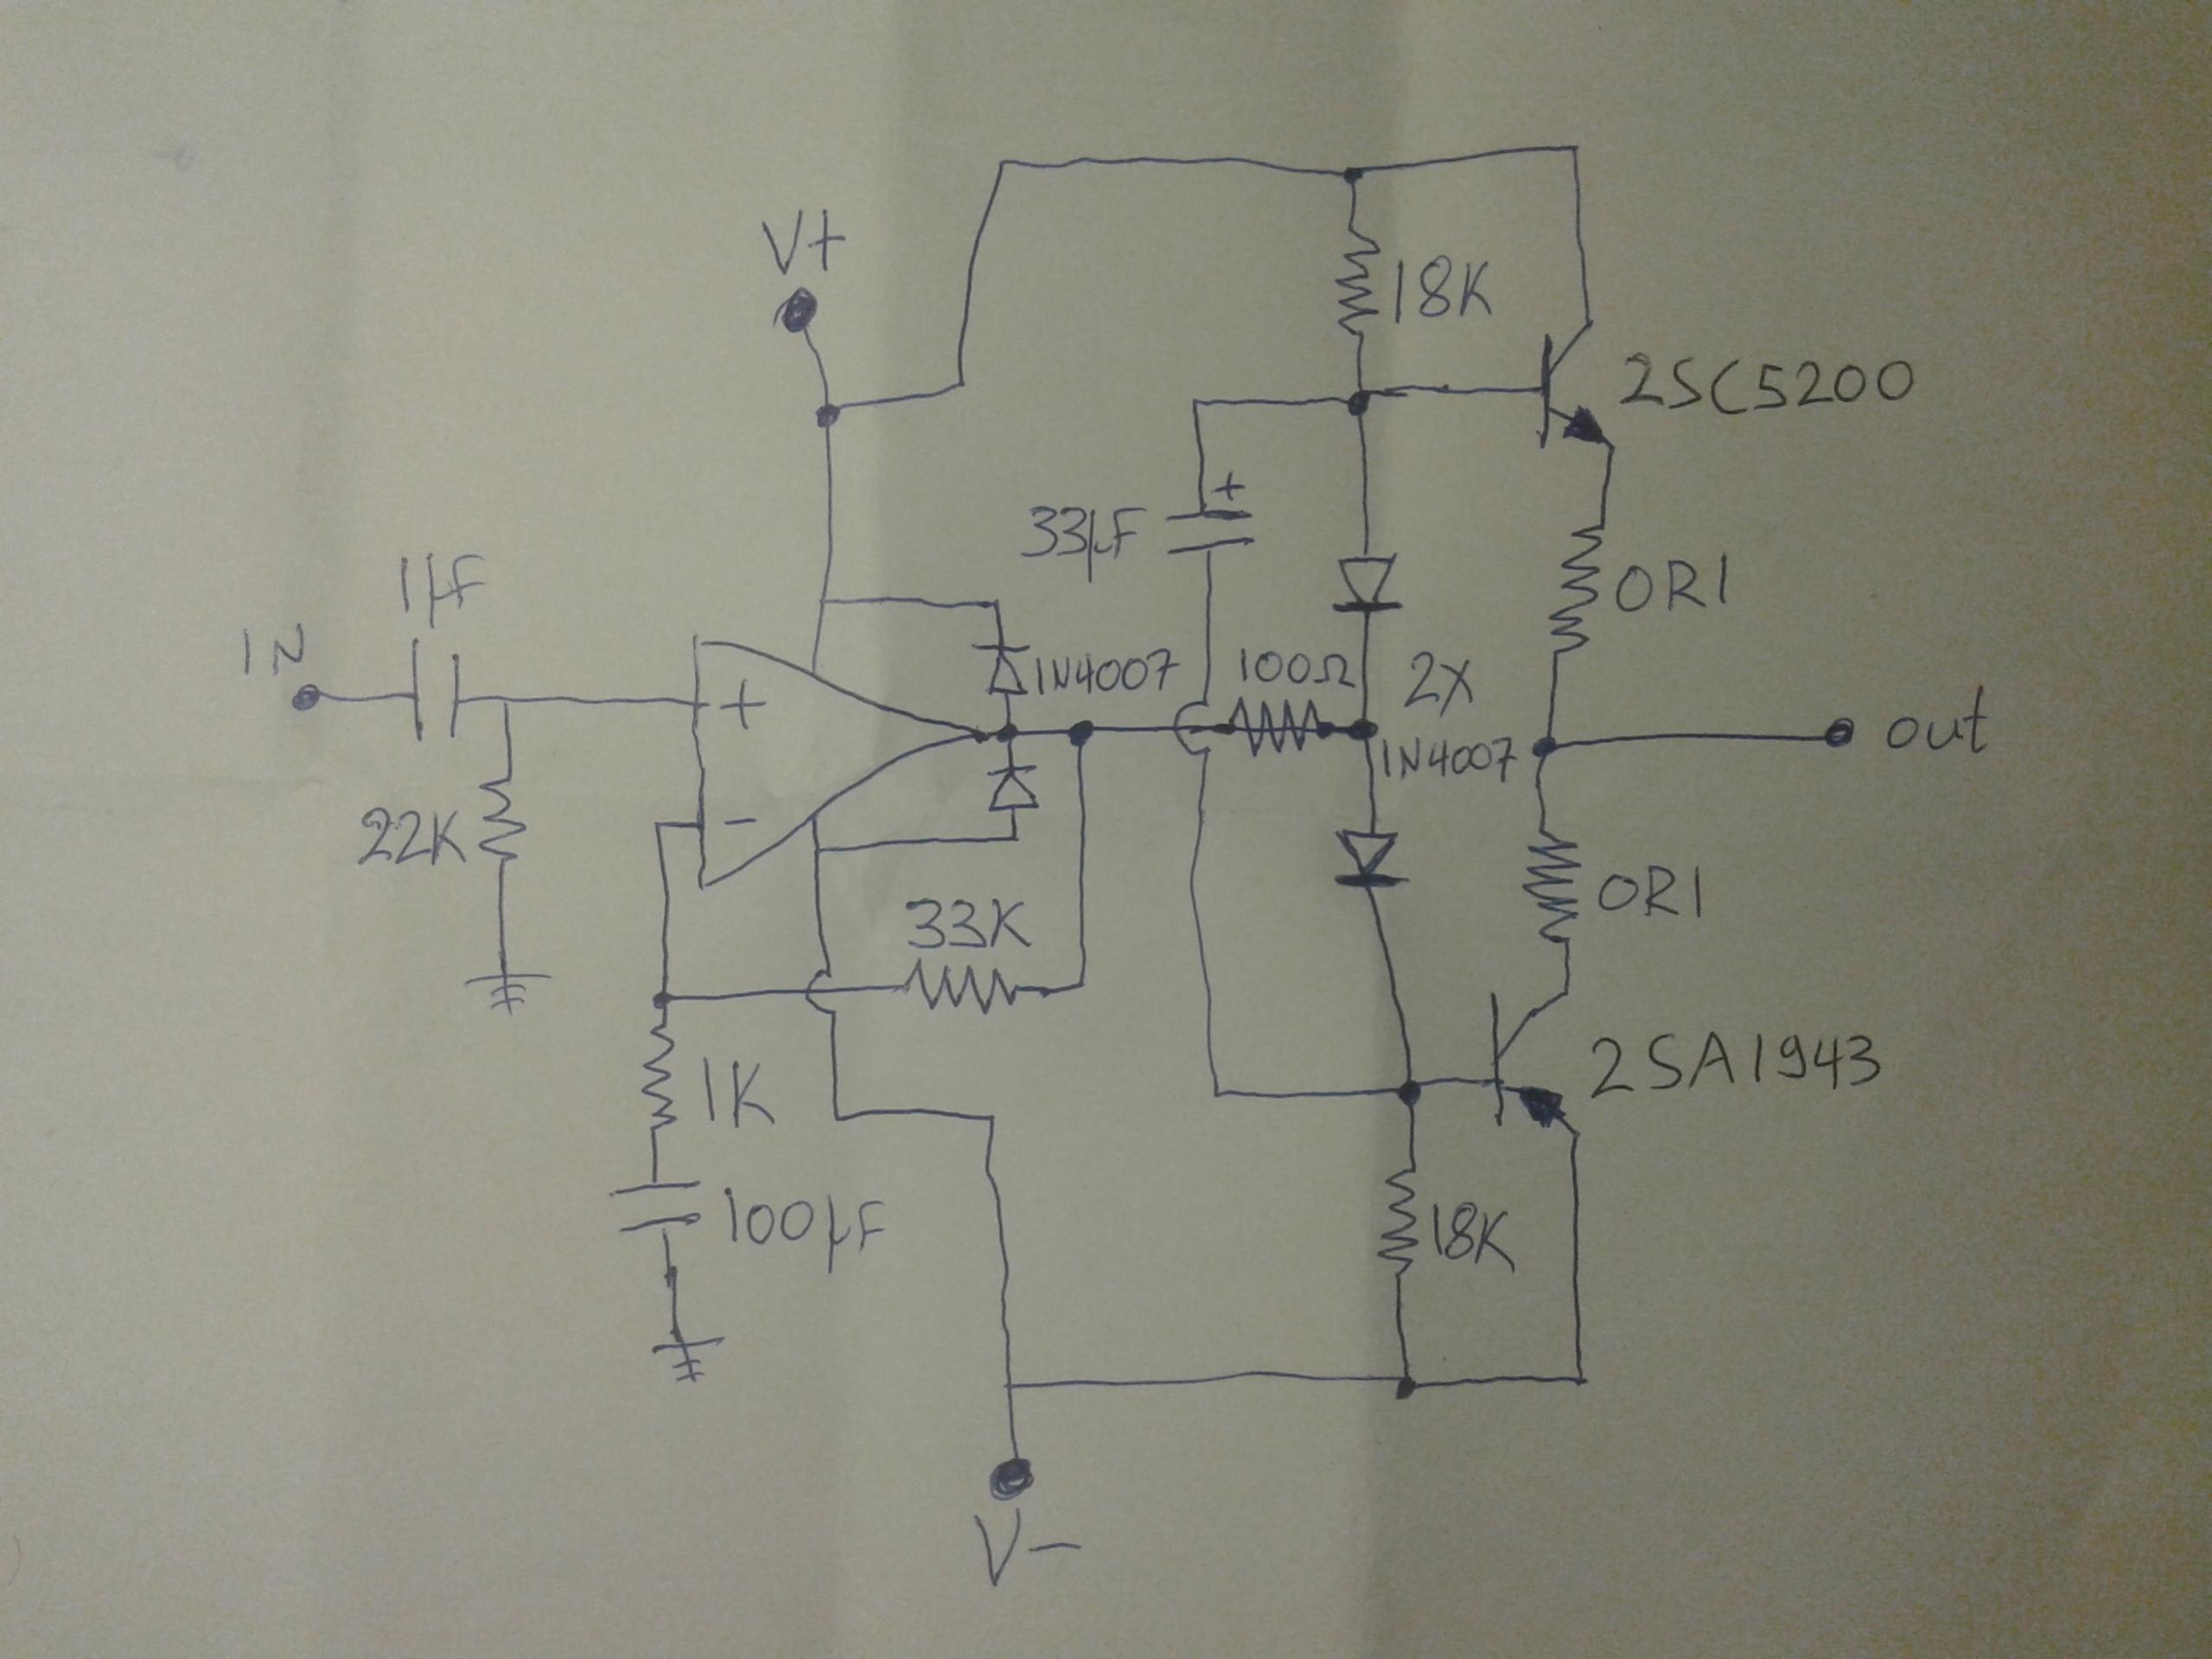 V+
18K
2SC5200
+
33µF
0R1
1µF
IN
1N4007
100Ω
2X
1N4007
out
+
-
22K
33K
0R1
1K
2SA1943
100µF
18K
V-